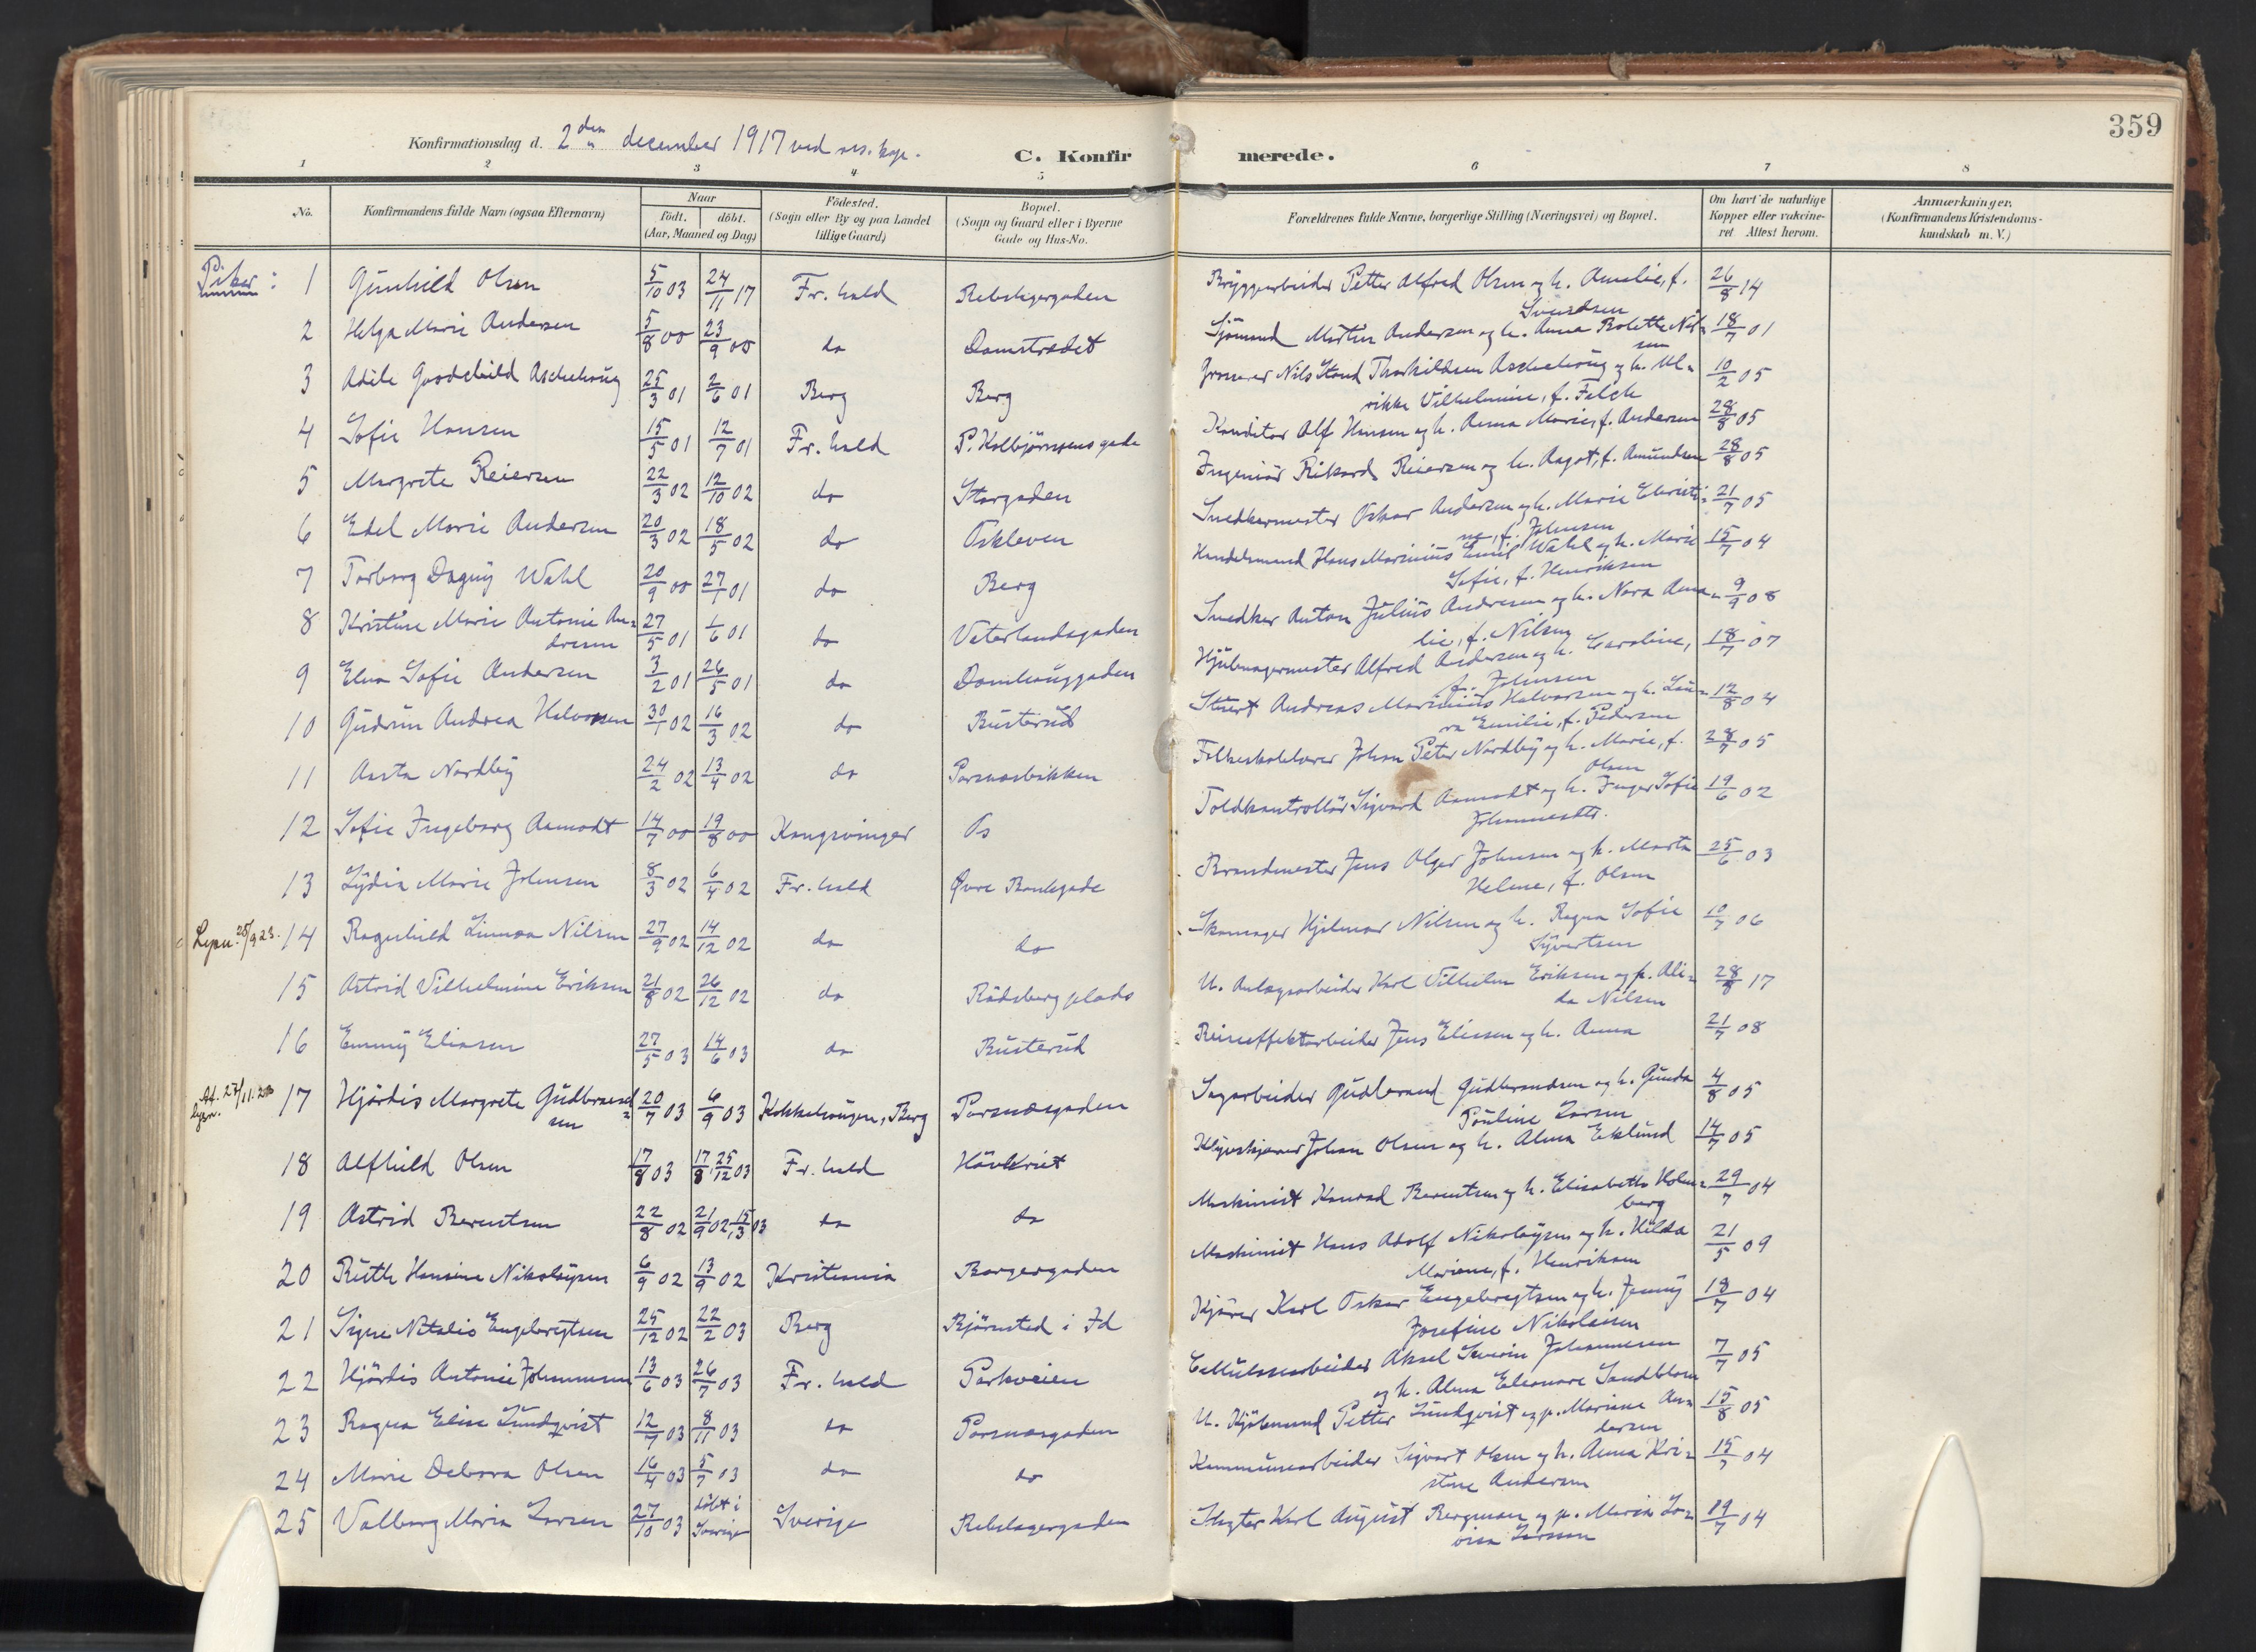 359
Konfirmationsdag d. 2den december 1917 ved res. kap.
C. Konfirmerede.
1 2 3 4 5 6 7 8
No.
Konfirmandens fulde Navn (ogsaa Efternavn)
Naar
födt. döbt.
(Aar, Maaned og Dag)
Födested.
(Sogn eller By og paa Landet tillige Gaard)
Bopæl.
(Sogn og Gaard eller i Byerne Gade og Hus-No.
Forældrenes fulde Navne, borgerlige Stilling (Næringsvei) og Bopæl.
Om havt de naturlige Kopper eller vakcineret. Attest herom.
Anmærkninger.
(Konfirmandens Kristendomskundskab m. V.)
Piker:
1 Gunhild Olsen 5/10 03 24/11 17 Fr.hald Rebslagergaden Bryggearbeider Petter Alfred Olsen og h. Amalie, f. Svendsen 26/8 14
2 Helga Marie Andersen 5/8 00 23/9 00 do Damstrædet Sjömand Martin Andersen og h. Anna Bolette Nilsen 18/7 01
3 Adele Goodchild Aschehoug 25/3 01 2/6 01 Berg Berg Grosserer Nils Stand Thorkildsen Aschehoug og h. Ulrikke Vilhelmine, f. Falck 10/2 05
4 Sofie Hansen 15/5 01 12/7 01 Fr.hald P. Kolbjörnsens gade Konditor Alf Hansen og h. Anna Marie, f. Andersen 28/8 05
5 Margrete Reiersen 22/3 02 12/10 02 do Storgaden Ingeniör Rikard Reiersen og h. Aagot, f. Amundsen 28/8 05
6 Edel Marie Andersen 20/3 02 18/5 02 do Oskleven Snedkermester Oskar Andersen og h. Marie Christine, f. Johnsen 21/7 05
7 Torborg Dagny Wahl 20/9 00 27/1 01 do Berg Handelsmand Hans Marinius Emil Wahl og h. Marie Sofie, f. Henriksen 15/7 04
8 Kristine Marie Antonie Andresen 27/5 01 1/6 01 do Vaterlandsgaden Snedker Anton Julius Andresen og h. Nora Amalie, f. Nilsen 9/9 08
9 Elna Sofie Andersen 3/2 01 26/5 01 do Damhauggaden Hjulmagermester Alfred Andersen og h. Caroline, f. Johnsen 18/7 07
10 Gudrun Andrea Halvorsen 30/1 02 16/3 02 do Busterud Stuert Andreas Marinius Halvorsen og h. Laura Emilie, f. Pedersen 12/8 04
11 Aasta Nordby 24/2 02 13/4 02 do Porsnæsbakken Folkeskolelærer Johan Peter Nordby og h. Marie, f. Olsen 28/7 05
12 Sofie Ingeborg Aamodt 14/7 00 19/8 00 Kongsvinger Os Toldkontrollör Sigvard Aamodt og h. Inger Sofie Johannesdtr. 19/6 02
13 Lydia Marie Johnsen 8/3 02 6/4 02 Fr.hald Øvre Bankgade Brandmester Jens Olger Johnsen og h. Marta Helene, f. Olsen 25/6 03
Lysn. 25/9 23. 14 Ragnhild Linnea Nilsen 27/9 02 14/12 02 do do Skomager Hjalmar Nilsen og h. Ragna Sofie Syvertsen 10/7 06
15 Astrid Vilhelmine Eriksen 21/8 02 26/12 02 do Rödsberg plads U. Anlægsarbeider Karl Vilhelm Eriksen og p. Alida Nilsen 28/8 17
16 Emmy Eliasen 27/5 03 14/6 03 do Busterud Reiseffektarbeider Jens Eliasen og h. Anna 21/7 08
At. 27/11.23 lysn. 17 Hjördis Margrete Gudbrandsen 20/7 03 6/9 03 Kokkehaugen, Berg Porsnæsgaden Sagarbeider Gudbrand Gudbrandsen og h. Gunda Pauline Larsen 4/8 05
18 Alfhild Olsen 17/8 03 17/8, 25/12 03 Fr.hald Hövleriet Klyvskjærer Johan Olsen og h. Alma Eklund 14/7 05
19 Astrid Berntsen 22/8 02 21/9 02, 15/3 03 do do Maskinist Konrad Berntsen og h. Elisabeth Holmberg 29/7 04
20 Ruth Hansine Nikolaysen 6/9 02 13/9 02 Kristiania Borgergaden Maskinist Hans Adolf Nikolaysen og h. Hilda Mariane, f. Henriksen 21/5 09
21 Signe Natalie Engebregtsen 25/12 02 22/2 03 Berg Björnsted i Id Kjörer Karl Oskar Engebregtsen og h. Jenny Josefine Nikolaisen 18/7 04
22 Hjördis Antonie Johannesen 13/6 03 26/7 03 Fr.hald Parkveien Cellulosearbeider Aksel Severin Johannesen og h. Alma Eleonore Sandblom 7/7 05
23 Ragna Elise Lundqvist 12/7 03 8/11 03 do Porsnæsgaden U. Kjöbmand Petter Lundqvist og p. Mariane Andersen 15/8 05
24 Marie Debora Olsen 16/4 03 5/7 03 do do Kommunearbeider Sigvart Olsen og h. Anna Kristine Andersen 15/7 04
25 Valborg Maria Larsen 27/10 03 döbt i Sverige Sverige Rebslagergaden Slagter Karl August Bergman og p. Maria Lovisa Larsson 19/7 04